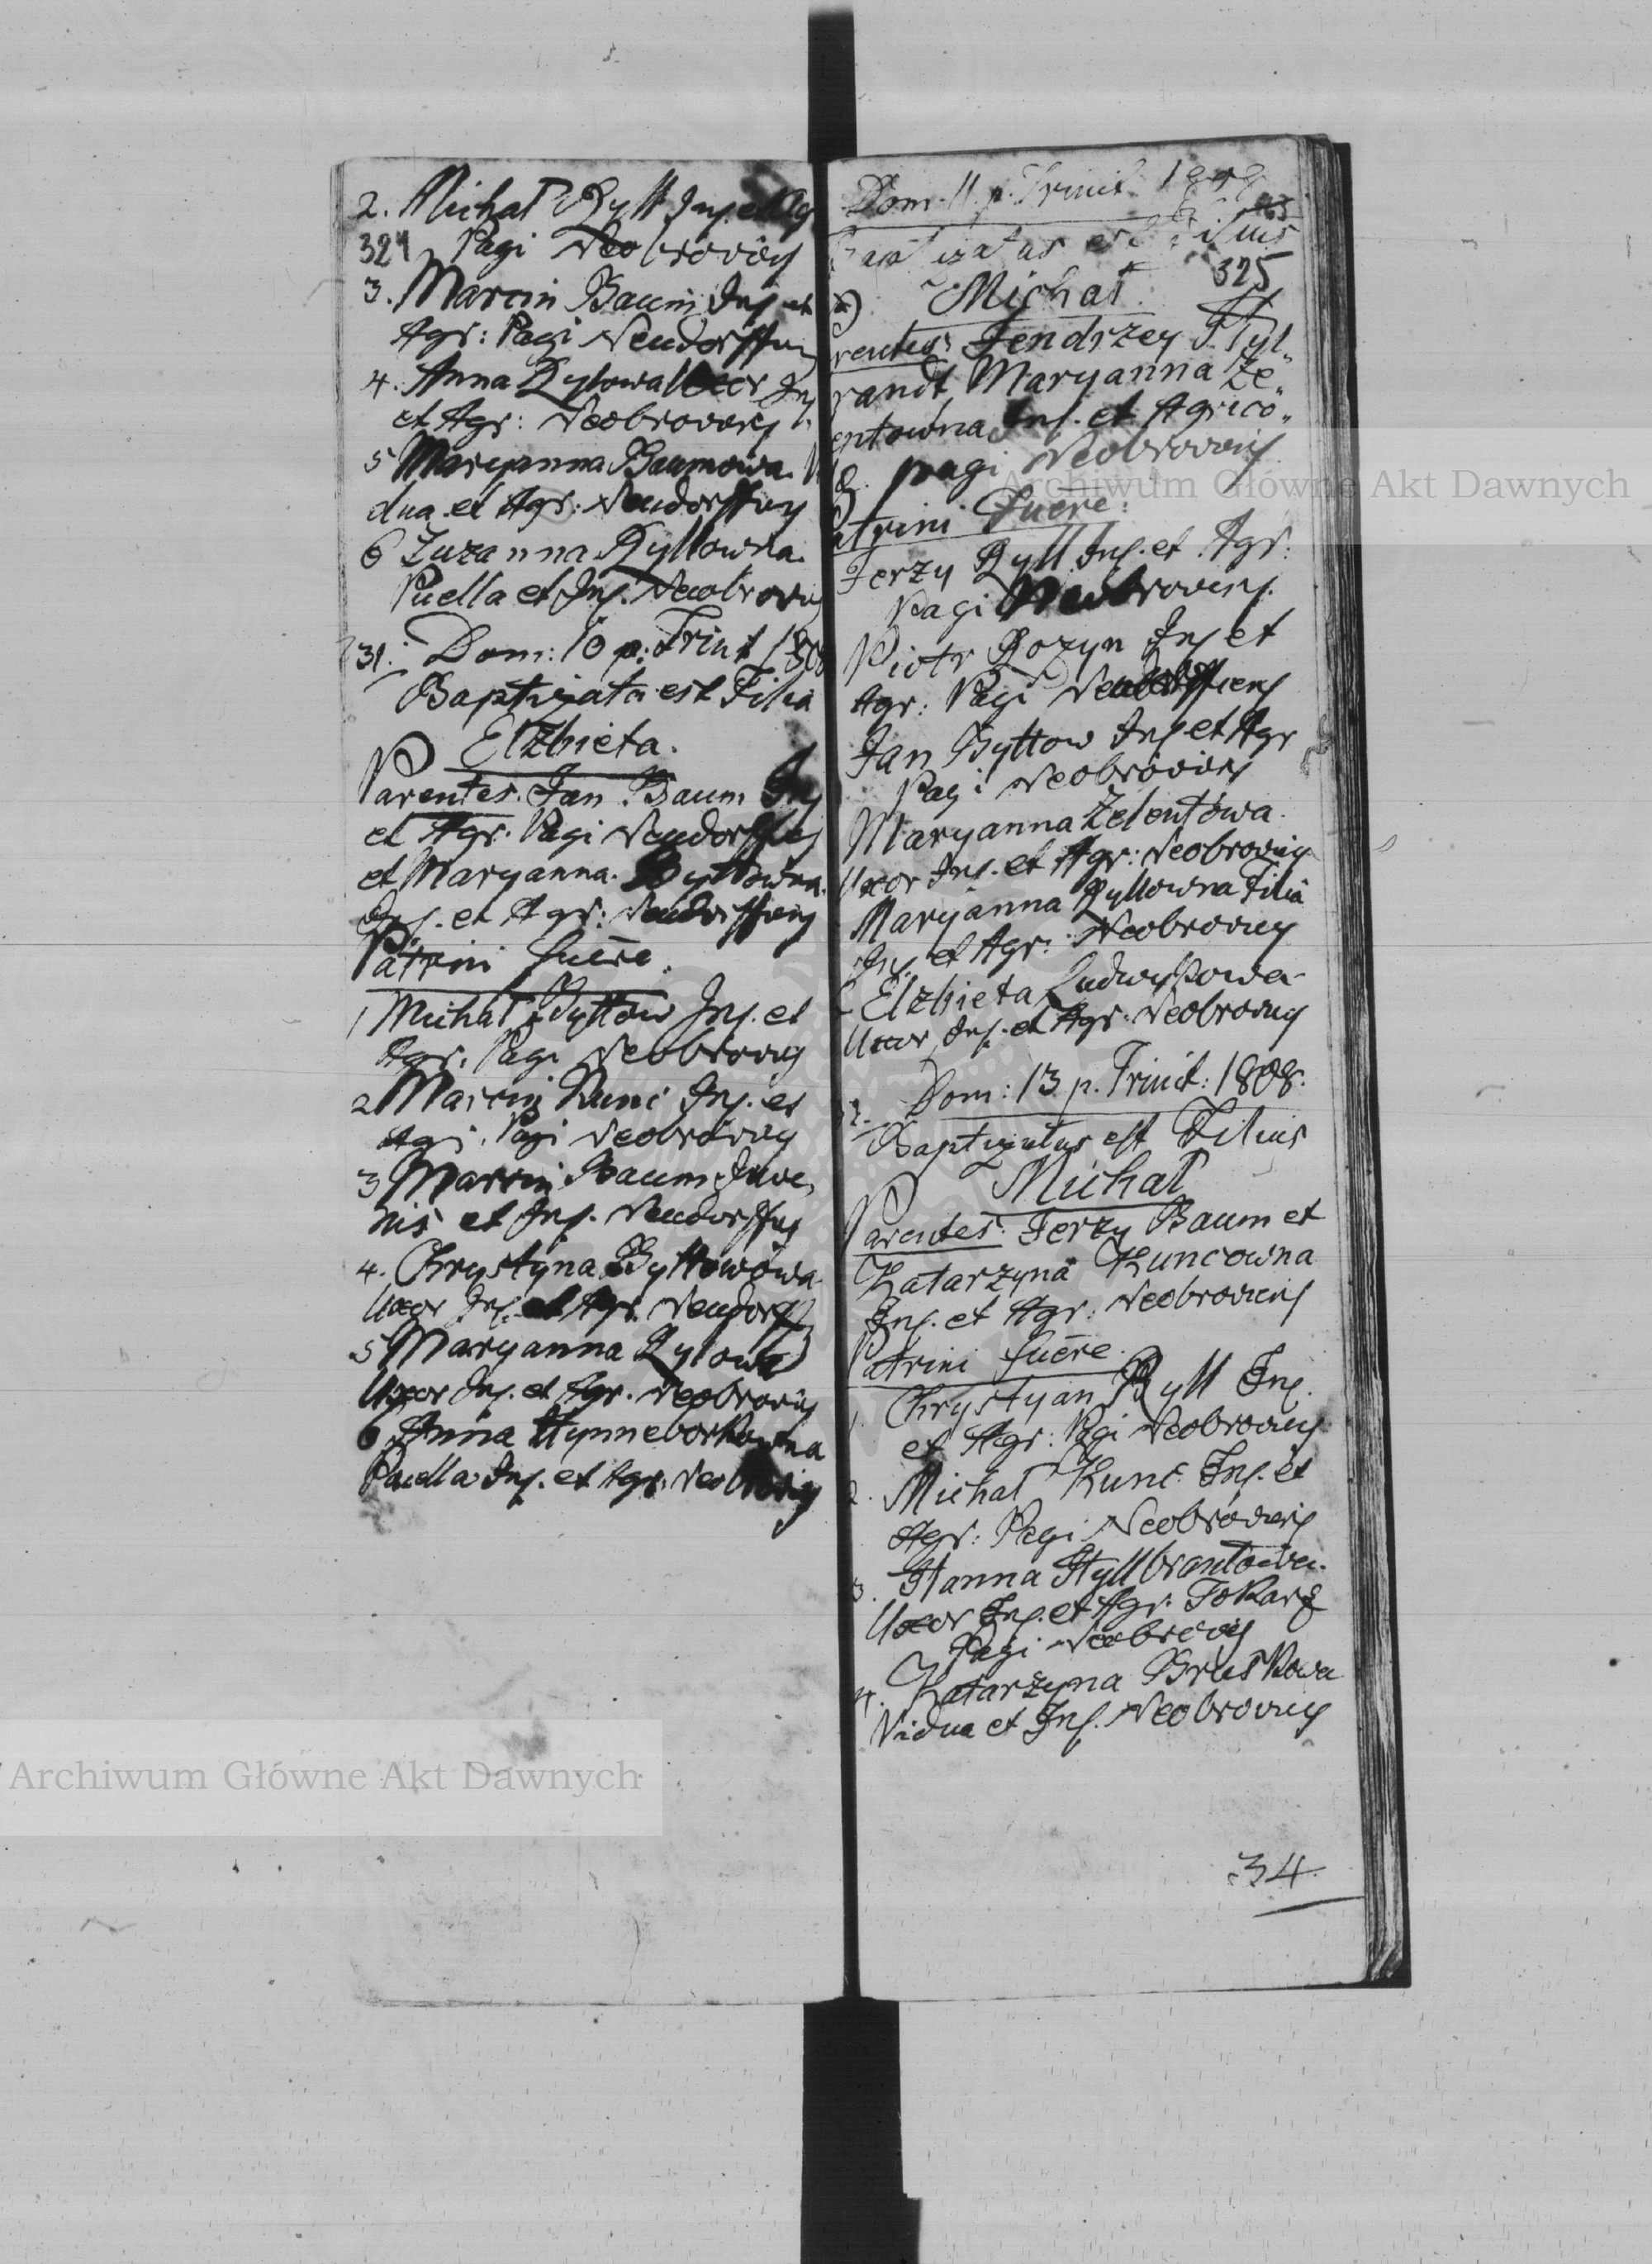 2. Michał Ryll Inq. et Ag
324 Pagi Neobroviens
3. Marcin Baum Inq. et
Agr: Pagi Neudorffien
4. Anna Rylowa Uxor Inq
et Agr: Neobroviens
5 Maryanna Baumowa Vi
dua et Agr: Neudorffiens
6 Zuzanna Ryllowna
Puella et Inq. Neobrovien
31. Dom: 10 p: Trinit 1808
Baptizata est Filia
Elżbieta.
Parentes. Jan Baum Inq
et Agr. Pagi Neudorffiens
et Maryanna Byttowna
Inq. et Agr: Neudorffiens
Patrini fuere.
1 Michał Byttow Inq. et
Agr. Pagi Neobroviens
2 Marcin Kunc Inq. et
Agr. Pagi Neobroviens
3 Marcin Baum Juve
nis et Inq. Neudorffiens
4. Chrystyna Byttowowa
Uxor Inq. et Agr. Neudorff
5 Maryanna Rylowa
Uxor Inq. et Agr. Neobroviens
6 Anna Hynneborkowna
Puella Inq. et Agr. Neobroviens
Dom. 11 p. Trinit 1808
Baptizatus est Filius
325
Michał
rentes: Jendrzey Hyl„
randt Maryanna Ze„
entowna Inq. et Agrico„
pagi Neobroviens
atrini Fuere:
Jerzy Ryll Inq. et Agr:
Pagi Neobroviens.
Piotr Rozyn Inq et
Agr: Pagi Neudorffiens
Jan Byttow Inq et Agr
Pagi Neobroviens
Maryanna Zelentowa
Uxor Inq. et Agr: Neobroviens
Maryanna Ryllowna Filia
Inq. et Agr: Neobroviens
Elzbieta Ludwykowa
Uxor Inq. et Agr. Neobroviens
Dom: 13 p. Trinit: 1808.
Baptizatus est Filius
Michał
Parentes: Jerzy Baum et
Katarzyna Kuncowna
Inq. et Agr: Neobroviens
Patrini fuere.
1. Chrystyan Ryll Inq.
et Agr: Pagi Neobroviens
2. Michał Kunc Inq. et
Agr: Pagi Neobroviens
3. Hanna Hyllbrantowa
Uxor Inq. et Agr. Tokarz
Pagi Neobroviens
4. Katarzyna Bruskowa
Vidua et Inq. Neobroviens
34.
Archiwum Główne Akt Dawnych
Archiwum Główne Akt Dawnych